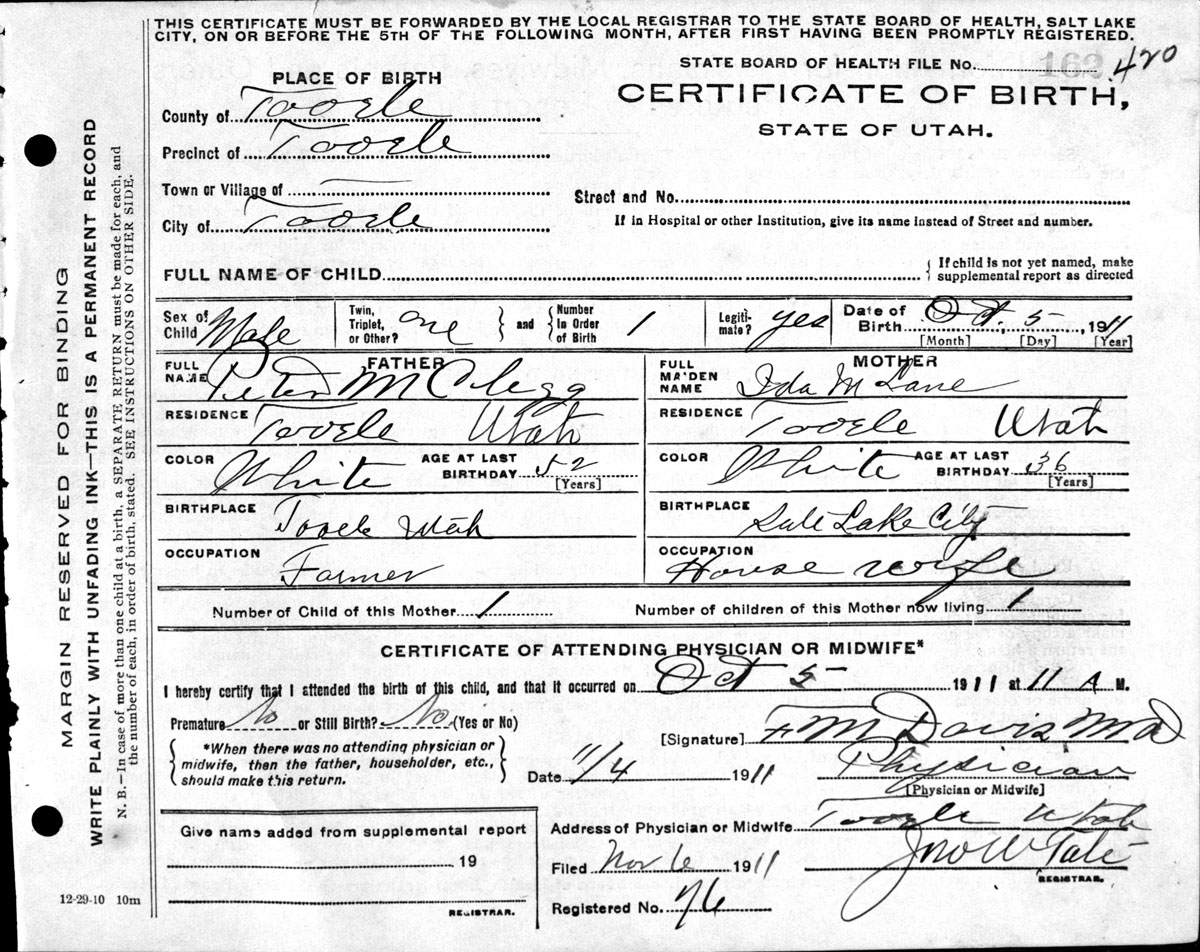 THIS CERTIFICATE MUST BE FORWARDED BY THE LOCAL REGISTRAR TO THE STATE BOARD OF HEALTH, SALT LAKE
CITY, ON OR BEFORE THE 5TH OF THE FOLLOWING MONTH, AFTER FIRST HAVING BEEN PROMPTLY REGISTERED.
STATE BOARD OF HEALTH FILE No. 420
PLACE OF BIRTH
CERTIFICATE OF BIRTH,
STATE OF UTAH.
County of Tooele
Precinct of Tooele
Town or Village of —
Street and No.
City of Tooele
If in Hospital or other Institution, give its name instead of Street and number.
FULL NAME OF CHILD { If child is not yet named, make supplemental report as directed
Sex of Child Male Twin, Triplet, or Other? one } and { Number in Order of Birth 1 Legitimate? yes Date of Birth Oct. 5 1911
[Month] [Day] [Year]
FATHER MOTHER
FULL NAME Peter M Clegg FULL MAIDEN NAME Ida M Lane
RESIDENCE Tooele Utah RESIDENCE Tooele Utah
COLOR White AGE AT LAST BIRTHDAY 52 [Years] COLOR White AGE AT LAST BIRTHDAY 36 [Years]
BIRTHPLACE Tooele Utah BIRTHPLACE Salt Lake City
OCCUPATION Farmer OCCUPATION House wife
Number of Child of this Mother 1 Number of children of this Mother now living 1
CERTIFICATE OF ATTENDING PHYSICIAN OR MIDWIFE*
I hereby certify that I attended the birth of this child, and that it occurred on Oct 5 1911 at 11 A M.
Premature No or Still Birth? No (Yes or No)
[Signature] F M Davis M D
{ *When there was no attending physician or midwife, then the father, householder, etc., should make this return. }
Date 11/4 1911 Physician
[Physician or Midwife]
Give name added from supplemental report
19
REGISTRAR.
Address of Physician or Midwife Tooele Utah
Filed Nov 6 1911 Jno W Tate
REGISTRAR.
Registered No. 76
12-29-10 10m
MARGIN RESERVED FOR BINDING
WRITE PLAINLY WITH UNFADING INK—THIS IS A PERMANENT RECORD
N. B.—In case of more than one child at a birth, a SEPARATE RETURN must be made for each, and
the number of each, in order of birth, stated. SEE INSTRUCTIONS ON OTHER SIDE.